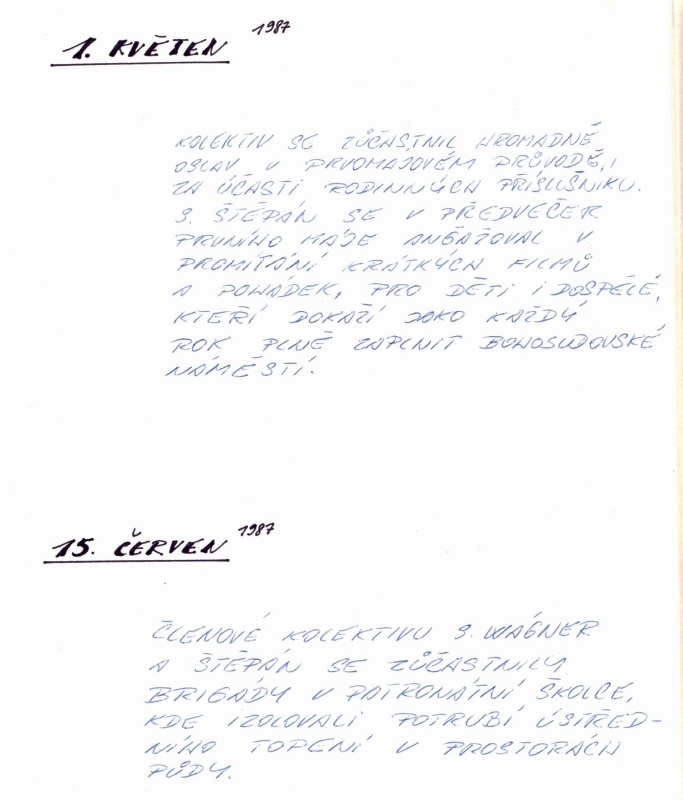 1. KVĚTEN 1987
KOLEKTIV SE ZÚČASTNIL HROMADNĚ
OSLAV V PRVOMÁJOVÉM PRŮVODĚ, I
ZA ÚČASTI RODINNÝCH PŘÍSLUŠNIKU.
S. ŠTĚPÁN SE V PŘEDVEČER
PRVNÍHO MÁJE ANGAŽOVAL V
PROMÍTÁNÍ KRÁTKÝCH FILMŮ
A POHÁDEK, PRO DĚTI I DOSPĚLÉ,
KTEŘÍ DOKAŽÍ JAKO KAŽDÝ
ROK PLNĚ ZAPLNIT BOHOSUDOVSKÉ
NÁMĚSTÍ.
15. ČERVEN 1987
ČLENOVÉ KOLEKTIVU S. WÁGNER
A ŠTĚPÁN SE ZÚČASTNILY
BRIGÁDY V PATRONÁTNÍ ŠKOLCE,
KDE IZOLOVALI POTRUBÍ ÚSTŘED-
NÍHO TOPENÍ V PROSTORÁCH
PŮDY.